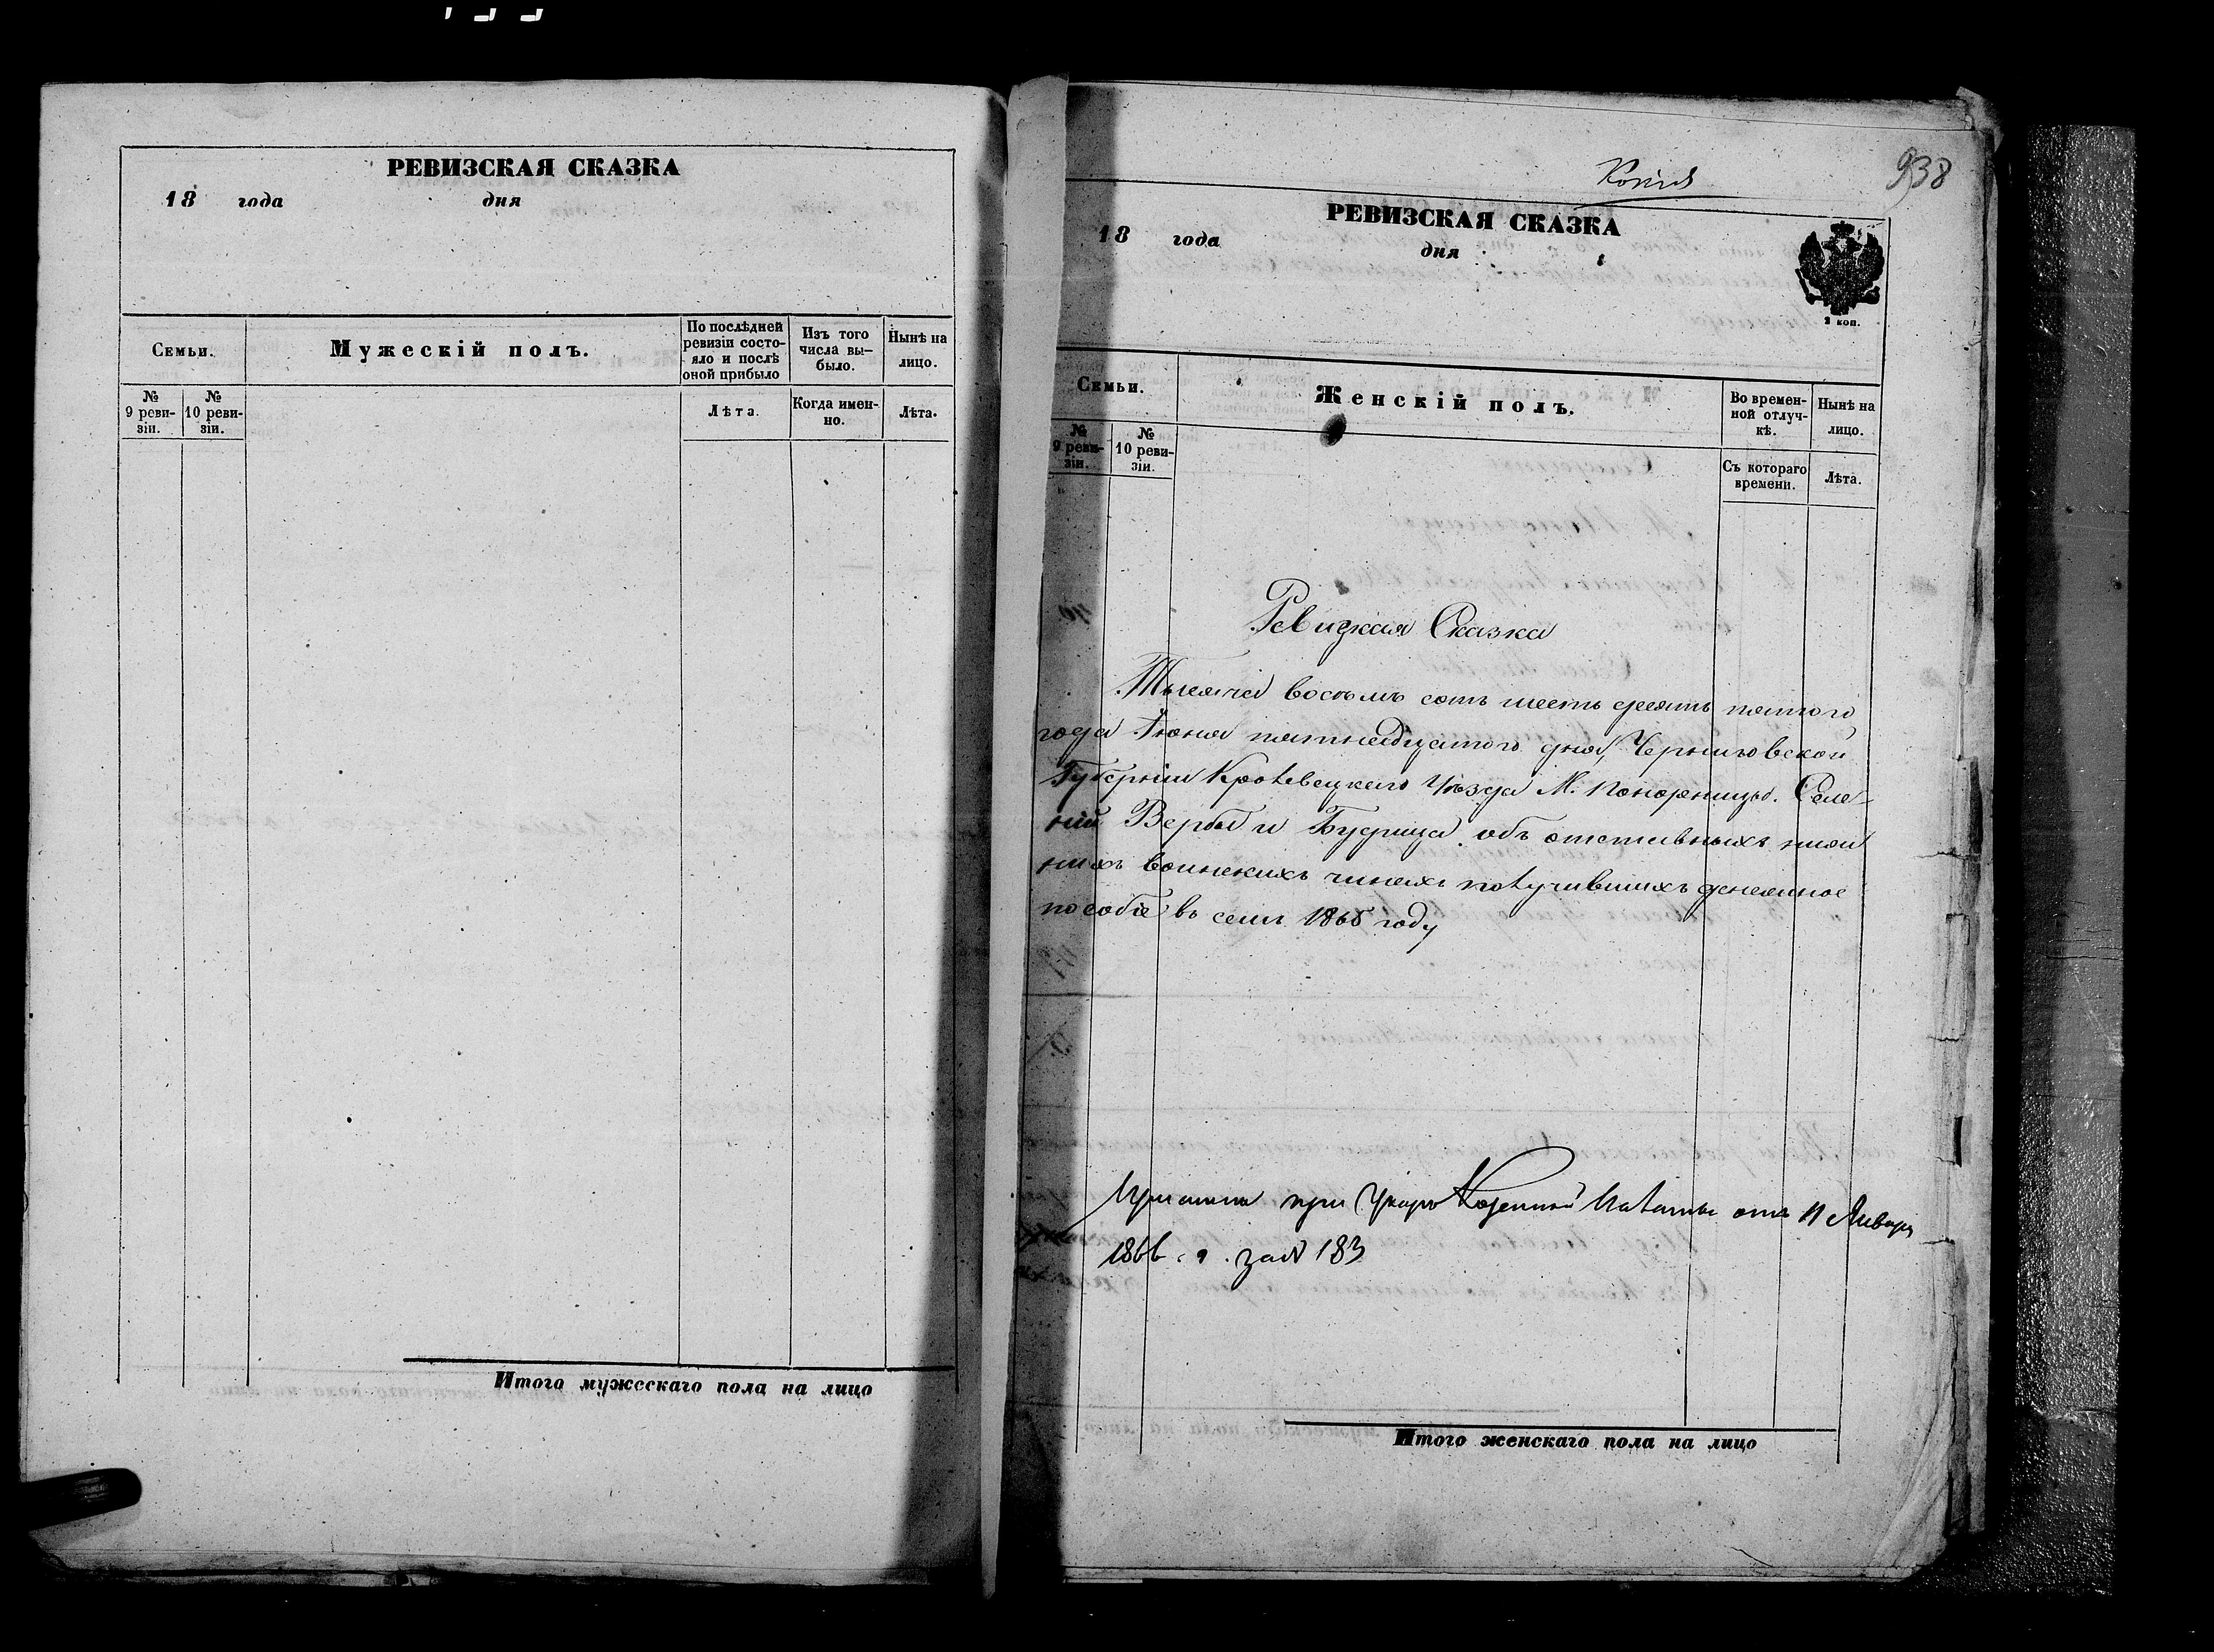 РЕВИЗСКАЯ СКАЗКА
18 года дня
Семьи.
Мужескій полъ.
По послѣдней
ревизіи состо-
яло и послѣ
оной прибыло
Изъ того
числа вы-
было.
Нынѣ на
лицо.
№
9 реви-
зіи.
№
10 реви-
зіи.
Лѣта.
Когда имен-
но.
Лѣта.
Итого мужескаго пола на лицо
Копія
938
РЕВИЗСКАЯ СКАЗКА
18 года дня
2 коп.
Семьи.
Женскій полъ.
Во времен-
ной отлуч-
кѣ.
Нынѣ на
лицо.
№
9 реви-
зіи.
№
10 реви-
зіи.
Съ котораго
времени.
Лѣта.
Ревизкая Сказка
Тысяча восемь сотъ шесть десятъ пятого
года Іюня пятнадцатого дня, Черниговской
Губерніи Кролевецкаго Уѣзда М. Понорницы. Селе-
ній Верба и Будища объ отставныхъ ниж
нихъ воинскихъ чинахъ получившихъ денежное
пособіе въ семъ 1865 году
при Указѣ Казенной Палаты отъ 11 Января
1866 г. за № 183
Итого женскаго пола на лицо